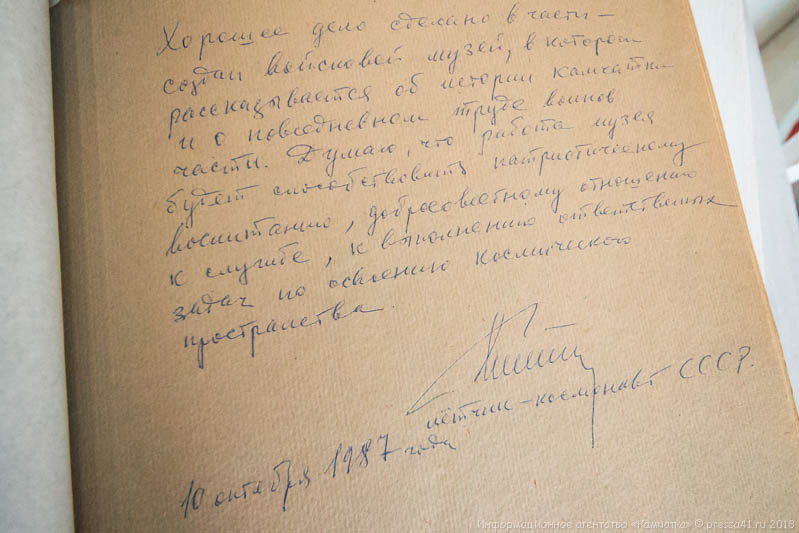 Хорошее дело сделано в части –
создан войсковой музей, в котором
рассказывается об истории Камчатки
и о повседневном труде воинов
части. Думаю, что работа музея
будет способствовать патриотическому
воспитанию, добросовестному отношению
к службе, к выполнению ответственных
задач по освоению космического
пространства.
лётчик-космонавт СССР.
10 октября 1987 года
Информационное агентство «Камчатка» © pressa41.ru 2018